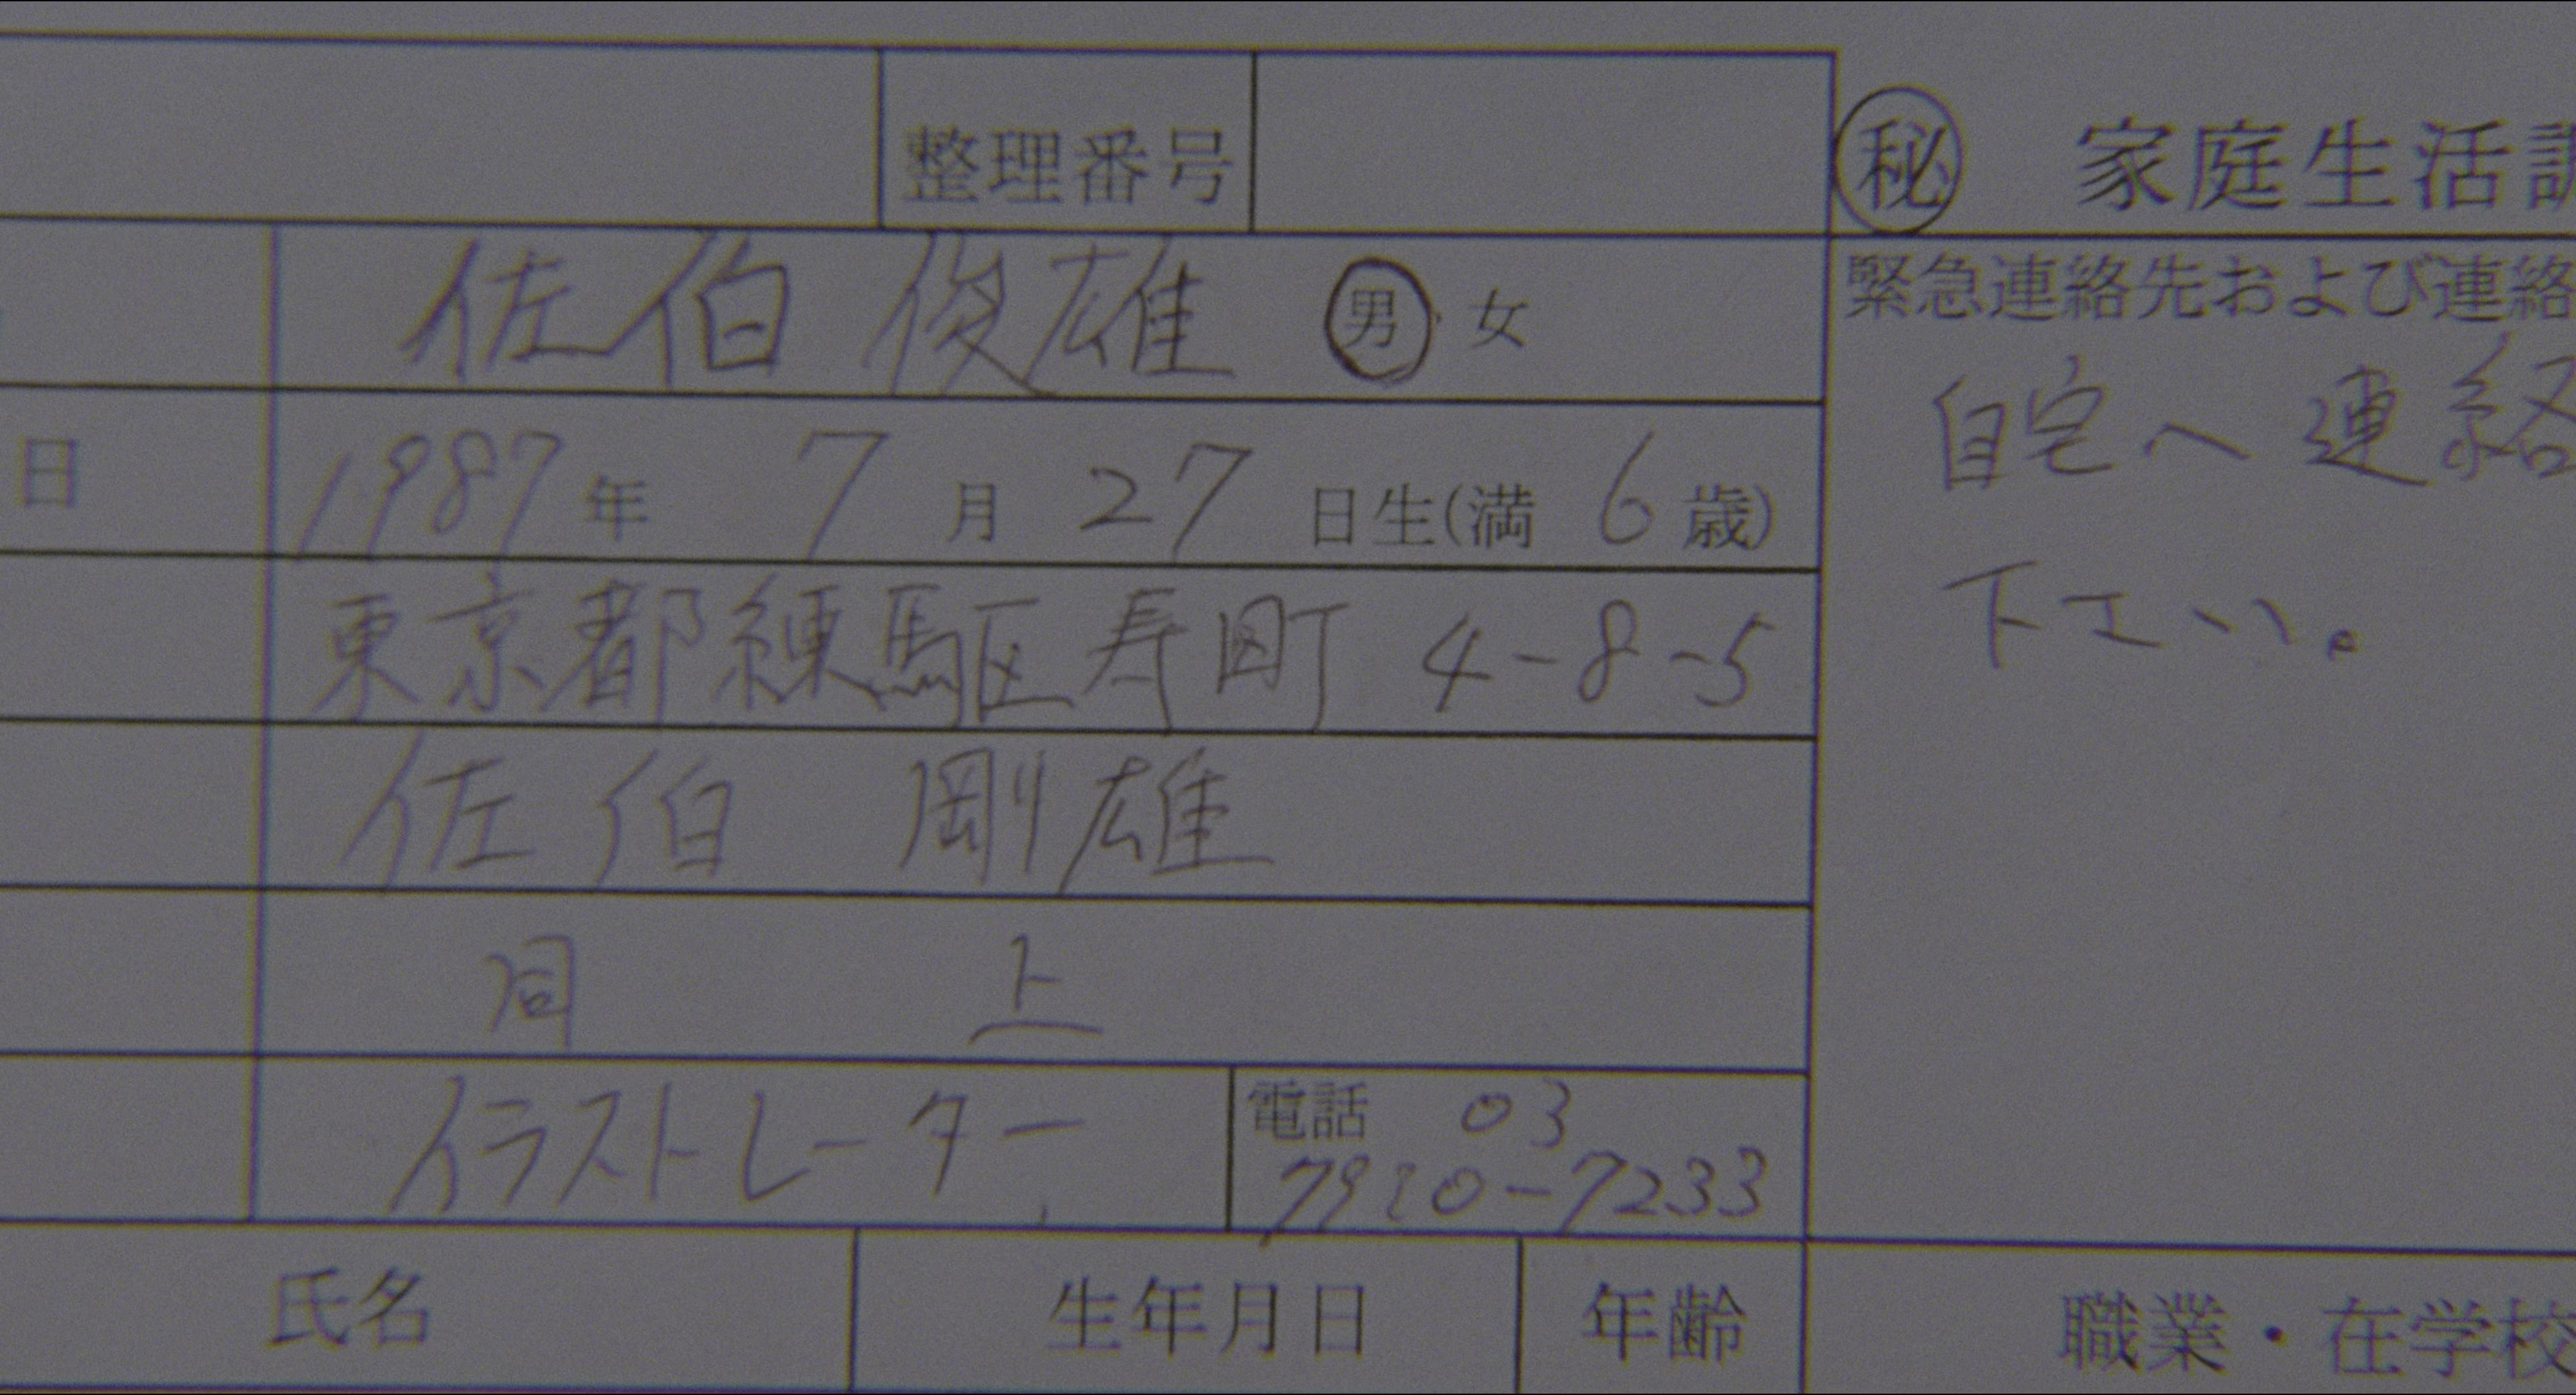 整理番号
㊙ 家庭生活調
佐伯 俊雄 男・女
緊急連絡先および連絡
自宅へ連絡
下さい。
日 1987年 7月 27日生(満 6歳)
東京都練馬区寿町 4-8-5
佐伯 剛雄
同 上
イラストレーター
電話 03
7910-7233
氏名 生年月日 年齢 職業・在学校